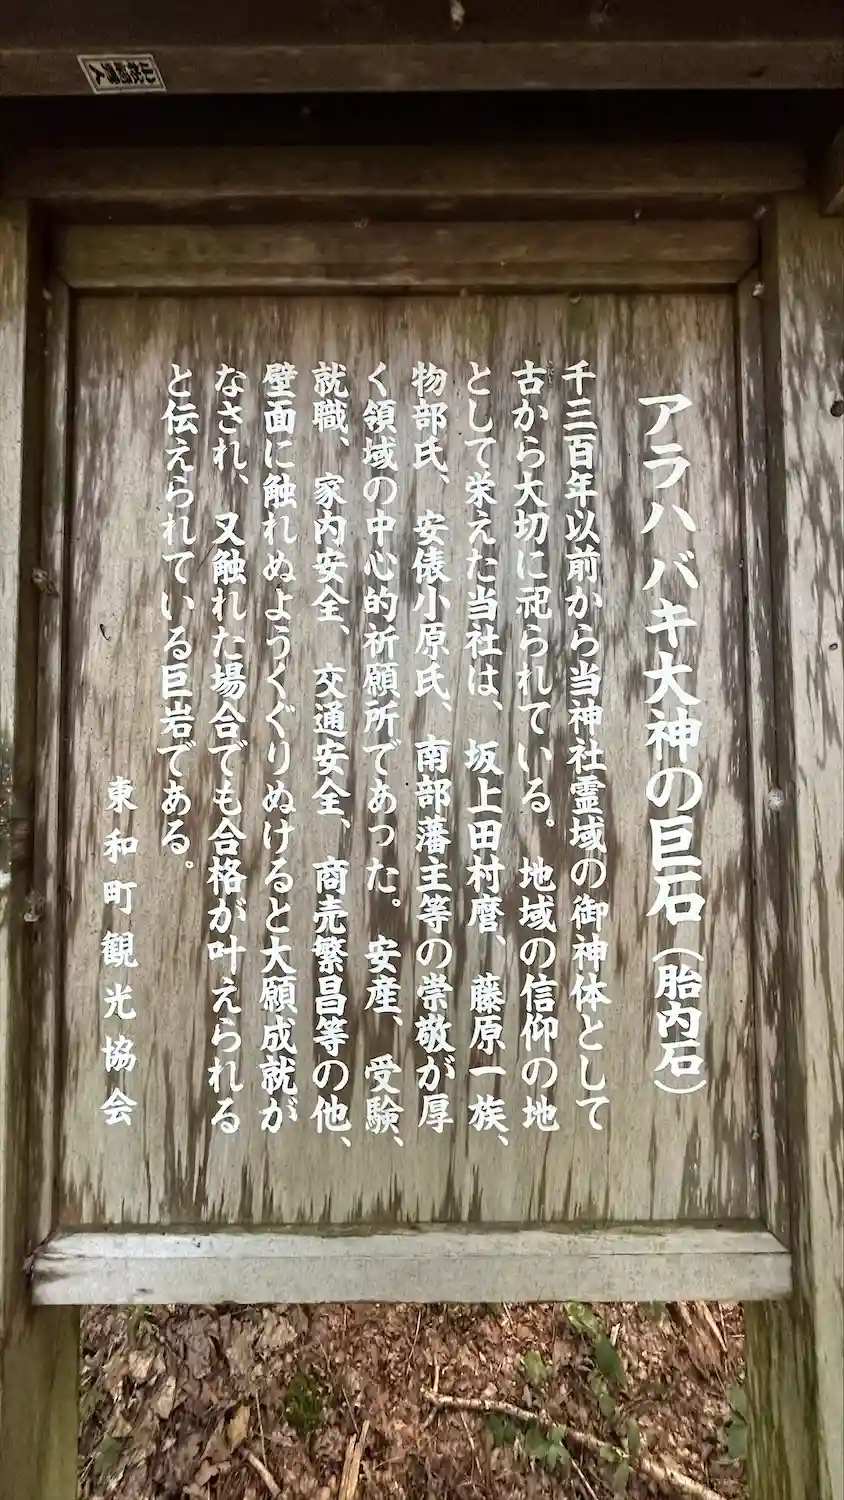 アラハバキ大神の巨石(胎内石)
千三百年以前から当神社霊域の御神体として
古から大切に祀られている。地域の信仰の地
として栄えた当社は、坂上田村麿、藤原一族、
物部氏、安俵小原氏、南部藩主等の崇敬が厚
く領域の中心的祈願所であった。安産、受験、
就職、家内安全、交通安全、商売繁昌等の他、
壁面に触れぬようくぐりぬけると大願成就が
なされ、又触れた場合でも合格が叶えられる
と伝えられている巨岩である。
東和町観光協会